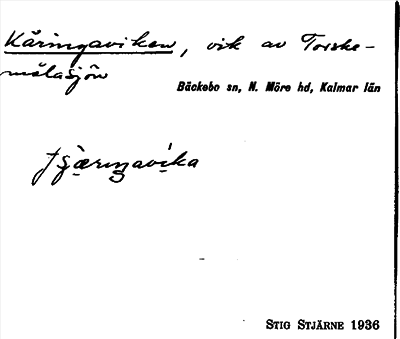 Käringaviken, vik av Torske-
målasjön
Bäckebo sn, N. Möre hd, Kalmar län
STIG STJÄRNE 1936